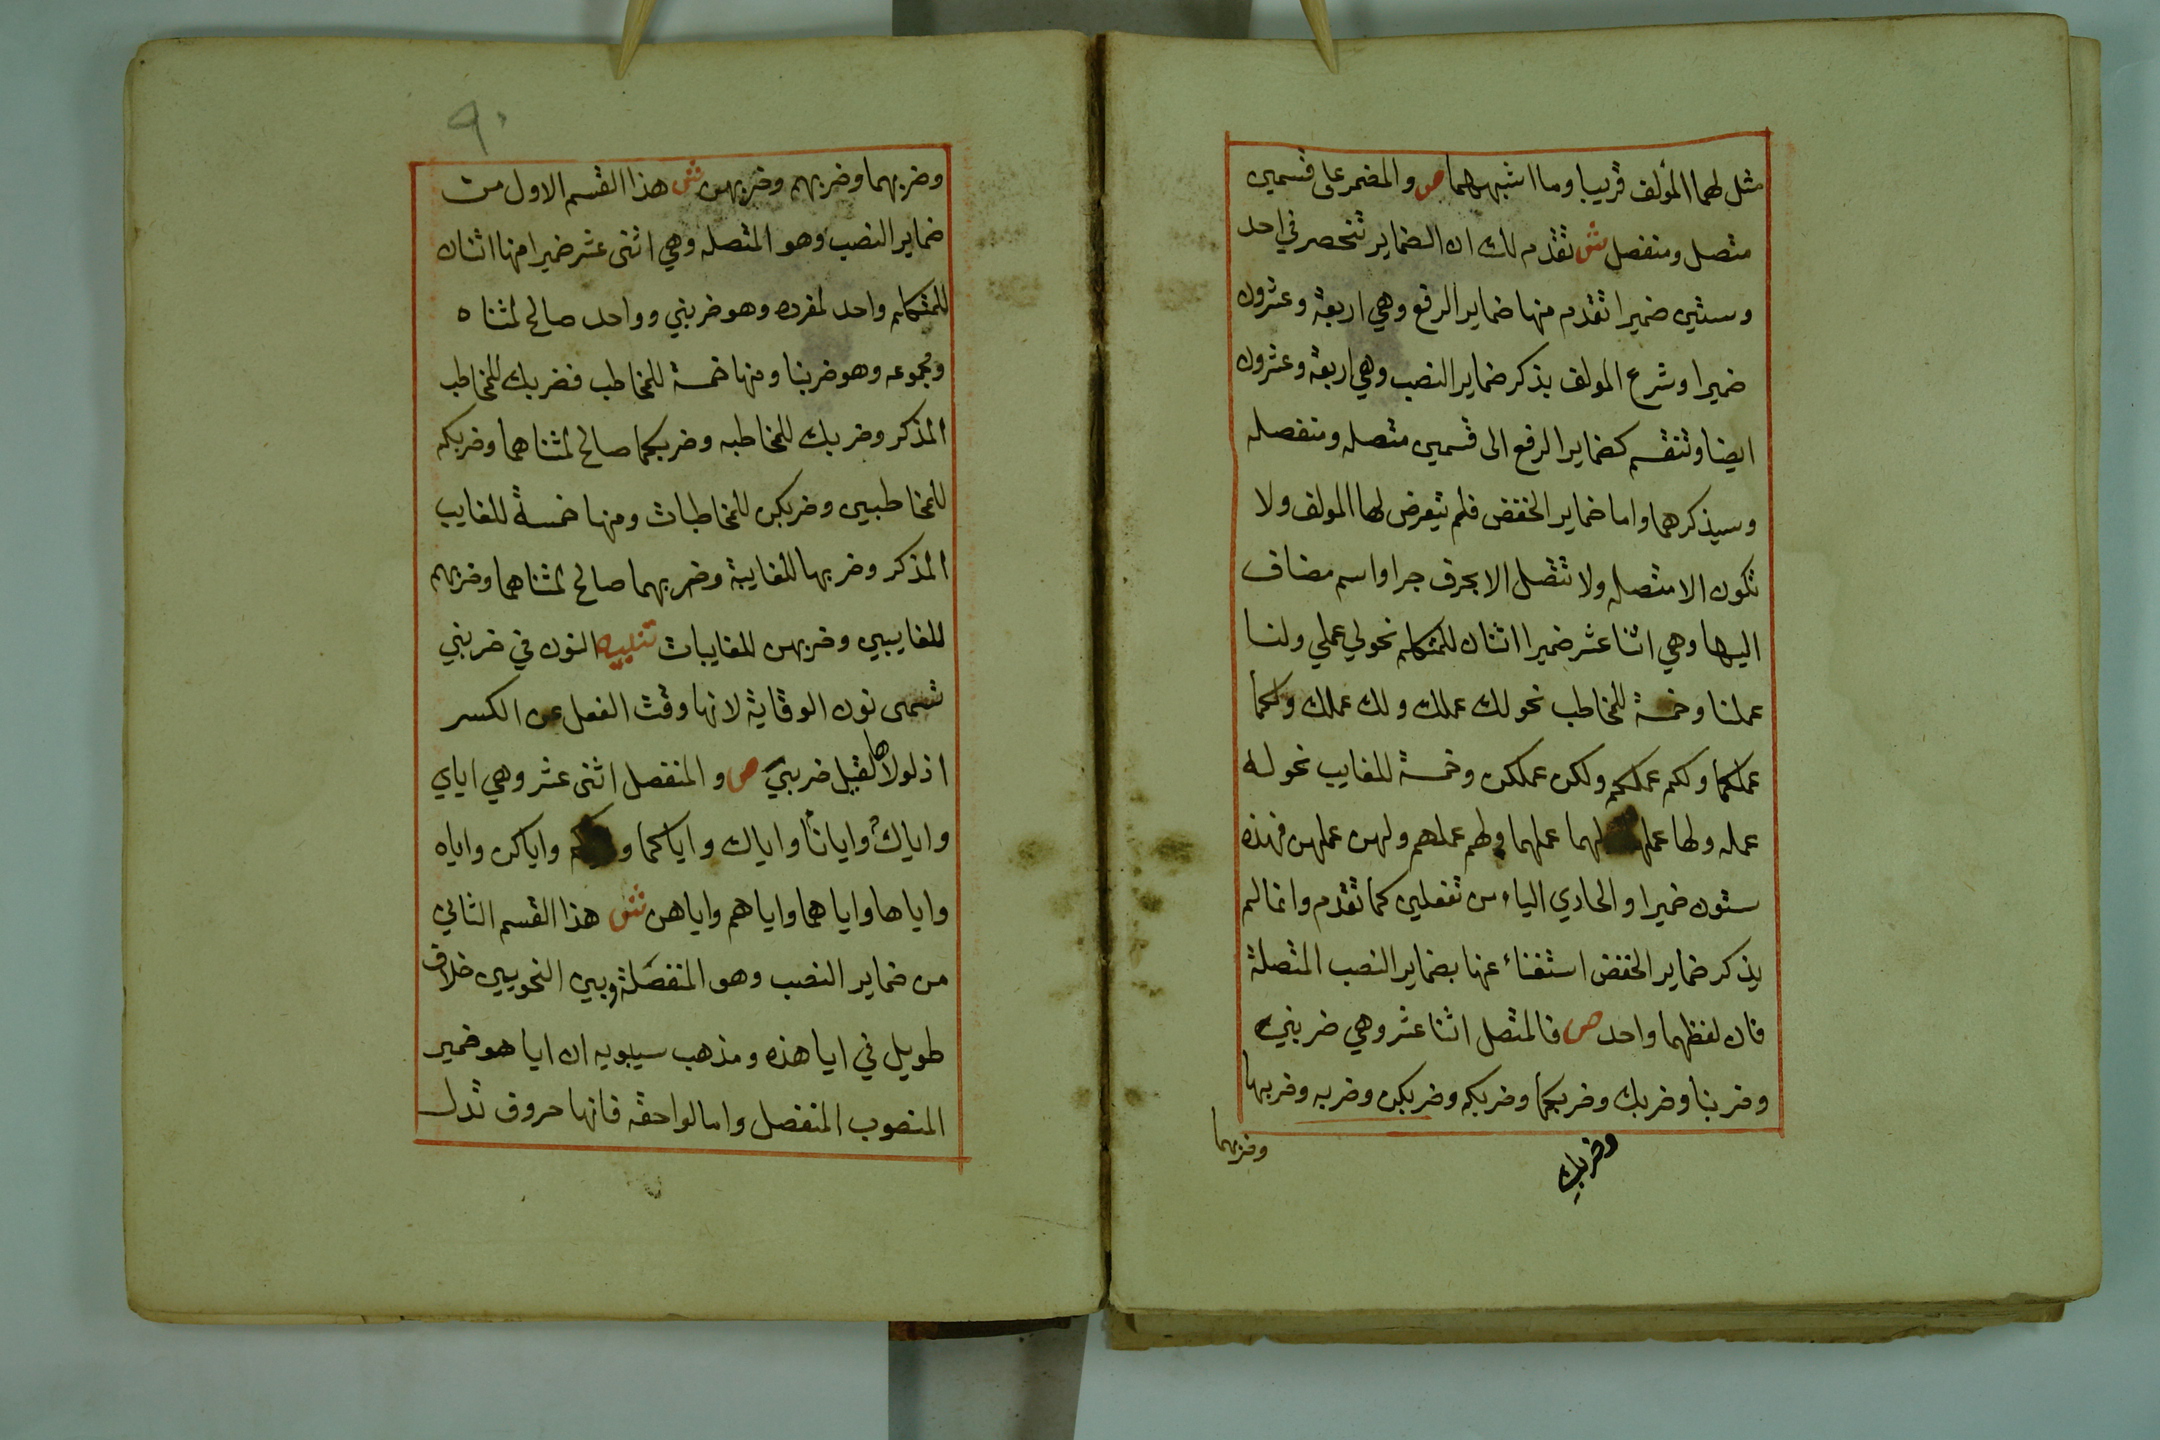 مثل لهما المؤلف قريبا وما اشبههما ص والمضمر على قسمين
متصل ومنفصل ش تقدم لك ان الضماير تنحصر في احد
وستين ضميرا تقدم منها ضماير الرفع وهي اربعة وعشرون
ضميرا وشرع المولف بذكر ضماير النصب وهي اربعة وعشرون
ايضا وتنقسم كضماير الرفع الى قسمين متصله ومنفصله
وسيذكرهما واما ضماير الخفض فلم يتعرض لها المولف ولا
تكون الا متصله ولا تتصل الا بحرف جر او اسم مضاف
اليها وهي اثنا عشر ضميرا اثنان للمتكلم نحو لي عملي ولنا
عملنا وخمسة للمخاطب نحو لك عملك ولك عملك ولكما
عملكما ولكم عملكم ولكن عملكن وخمسة للغايب نحو له
عمله ولها عملها لهما عملهما ولهم عملهم ولهن عملهن فهذه
ستون ضميرا والحادي الياء من تفعلين كما تقدم وانما لم
يذكر ضماير الخفض استغناء عنها بضماير النصب المتصلة
فان لفظهما واحد ص فالمتصل اثنا عشر وهي ضربني
وضربنا وضربك وضربكما وضربكم وضربكن وضربه وضربها
وضربهما
وضربكِ
٩٠
وضربهما وضربهم وضربهن ش هذا القسم الاول من
ضماير النصب وهو المتصله وهي اثنى عشر ضميرا منها اثنان
للمتكلم واحد لمفرده وهو ضربني وواحد صالح لمثناه
ومجموعه وهو ضربنا ومنها خمسة للمخاطب فضربك للمخاطب
المذكر وضربك للمخاطبه وضربكما صالح لمثناهما وضربكم
للمخاطبين وضربكن للمخاطبات ومنها خمسة للغايب
المذكر وضربها للغايبة وضربهما صالح لمثناهما وضربهم
للغايبين وضربهن للغايبات تنبيه النون في ضربني
تسمى نون الوقاية لانها وقت الفعل عن الكسر
اذ لولاها لقيل ضربي ص والمنفصل اثنى عشر وهي اياي
واياك وايانا واياك واياكما واياكن واياه
واياها واياهما واياهم واياهن ش هذا القسم الثاني
من ضماير النصب وهو المنفصلة وبين النحويين خلاف
طويل في ايا هذه ومذهب سيبويه ان ايا هو ضمير
المنصوب المنفصل واما لواحقه فانها حروف تدل